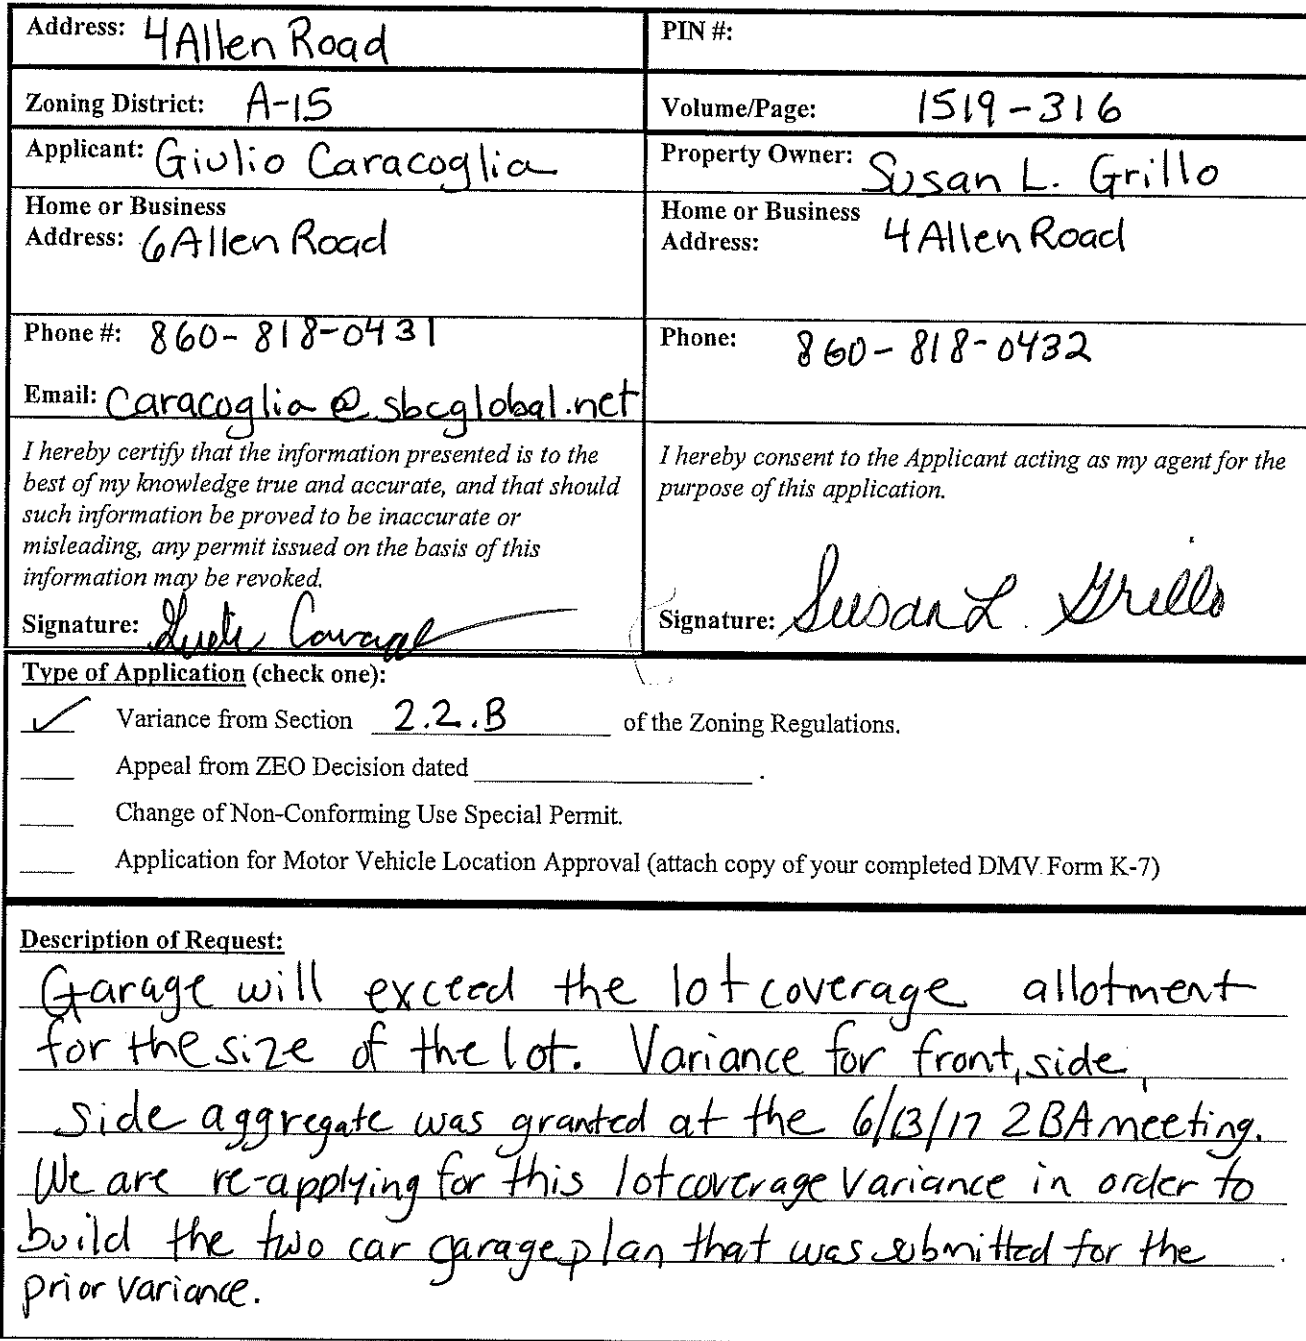 Address: 4 Allen Road
PIN #:
Zoning District: A-15
Volume/Page: 1519-316
Applicant: Giulio Caracoglia
Property Owner: Susan L. Grillo
Home or Business
Address: 6 Allen Road
Home or Business
Address: 4 Allen Road
Phone #: 860-818-0431
Phone: 860-818-0432
Email: Caracoglia@sbcglobal.net
I hereby certify that the information presented is to the
best of my knowledge true and accurate, and that should
such information be proved to be inaccurate or
misleading, any permit issued on the basis of this
information may be revoked.
Signature:
I hereby consent to the Applicant acting as my agent for the
purpose of this application.
Signature: Susan L. Grillo
Type of Application (check one):
✓ Variance from Section 2.2.B of the Zoning Regulations.
Appeal from ZEO Decision dated .
Change of Non-Conforming Use Special Permit.
Application for Motor Vehicle Location Approval (attach copy of your completed DMV Form K-7)
Description of Request:
Garage will exceed the lot coverage allotment
for the size of the lot. Variance for front, side,
side aggregate was granted at the 6/13/17 ZBA meeting.
We are re-applying for this lot coverage variance in order to
build the two car garage plan that was submitted for the
prior variance.